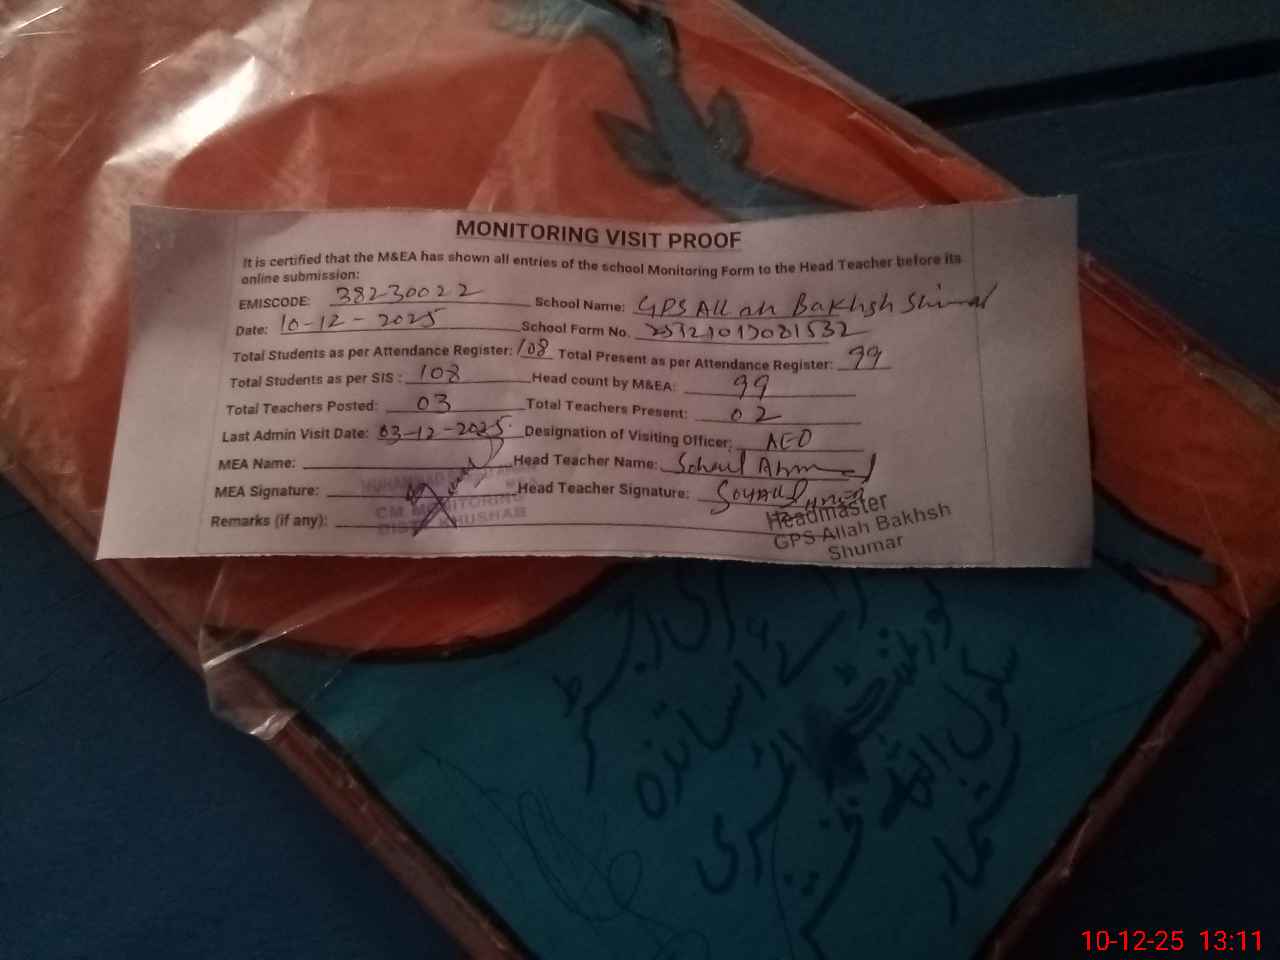 MONITORING VISIT PROOF
It is certified that the M&EA has shown all entries of the school Monitoring Form to the Head Teacher before its
online submission:
EMISCODE: 38230022 School Name: GPS Allah Bakhsh
Date: 10-12-2025 School Form No.
Total Students as per Attendance Register: 108 Total Present as per Attendance Register: 99
Total Students as per SIS : 108 Head count by M&EA: 99
Total Teachers Posted: 03 Total Teachers Present: 02
Last Admin Visit Date: 03-12-2025 Designation of Visiting Officer: AEO
MEA Name: Head Teacher Name: Sohail Ahmed
MEA Signature: Head Teacher Signature: Sohail Ahmed
CM MONITORING
DISTT KHUSHAB
Remarks (if any):
Headmaster
GPS Allah Bakhsh
Shumar
رجسٹر
اساتذہ
گورنمنٹ پرائمری
سکول اللہ بخش
شمار
10-12-25 13:11